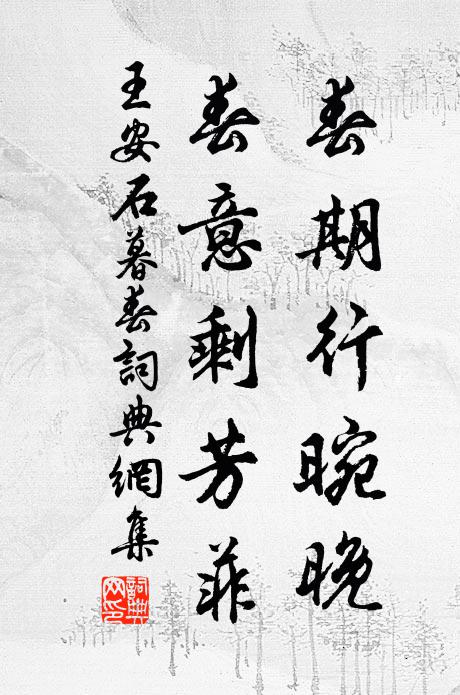 春期行晼晚
春意剩芳菲
王安石暮春詞典網集
詞典